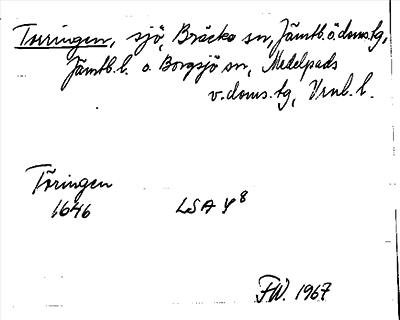 Torringen, sjö, Bräcke sn, Jämtl. ö. doms. tg,
Jämtl. l. o. Borgsjö sn, Medelpads
v. doms. tg, Vrnl. l.
Töringen
1646 LSA Y8
FW. 1967